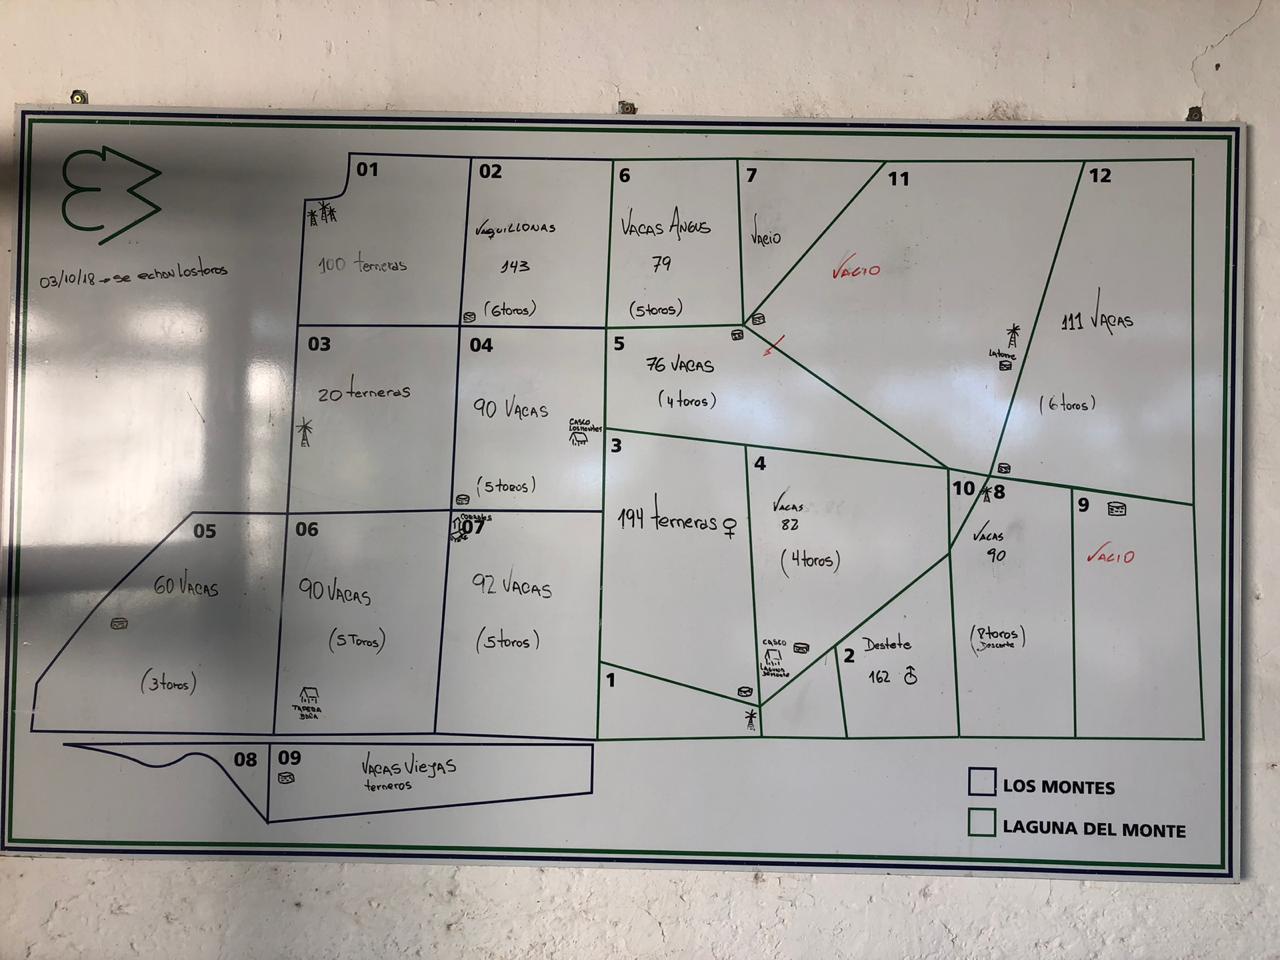 03/10/18 → se echan los toros
01
100 terneras
02
VAQUILLONAS
143
(6 toros)
6
VACAS ANGUS
79
(5 toros)
7
VACIO
11
VACIO
La torre
12
111 VACAS
(6 toros)
03
20 terneras
04
90 VACAS
CASCO
LOS MONTES
(5 toros)
5
76 VACAS
(4 toros)
3
194 terneras ♀
4
VACAS
82
(4 toros)
CASCO
10
8
VACAS
90
(8 toros)
Descarte
9
VACIO
05
60 VACAS
(3 toros)
06
90 VACAS
(5 Toros)
TAPERA
07
92 VACAS
(5 toros)
1
2
Destete
162 ♂
08
09
VACAS VIEJAS
terneros
LOS MONTES
LAGUNA DEL MONTE